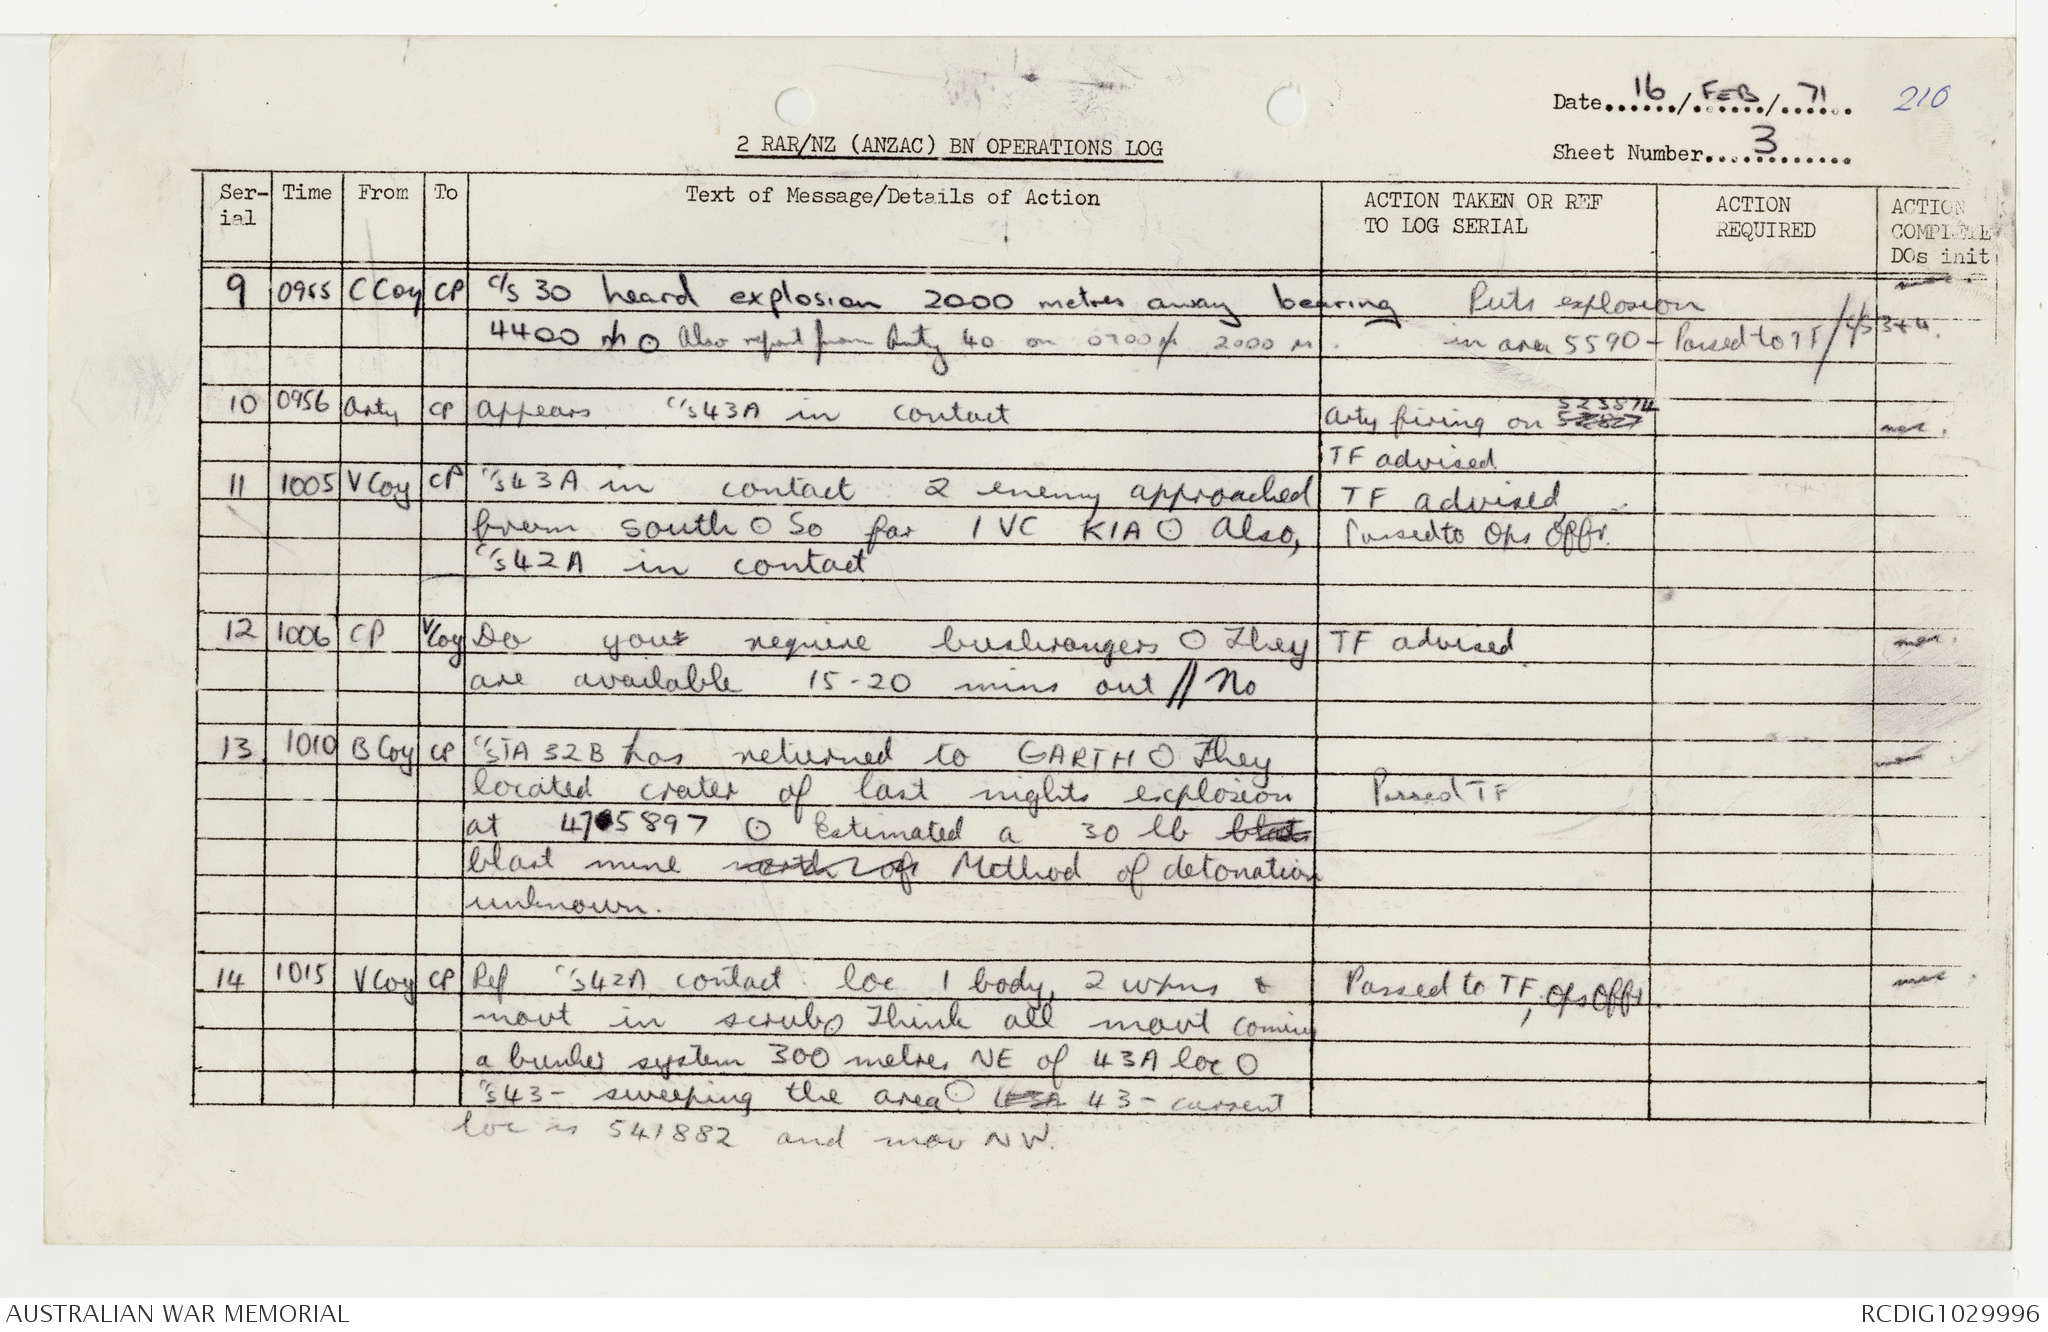 Date 16/FEB/71 210
2 RAR/NZ (ANZAC) BN OPERATIONS LOG
Sheet Number 3
Ser-ial Time From To Text of Message/Details of Action ACTION TAKEN OR REF TO LOG SERIAL ACTION REQUIRED ACTION COMPLETE DOs init
9 0955 C Coy CP C/S 30 heard explosion 2000 metres away bearing Puts explosion
4400 O Also report from Arty 40 on 0700 2000 m. in area 5590 - Passed to TF / C/S 3+4.
10 0956 Arty CP appears C/S 43A in contact Arty firing on 523874
TF advised
11 1005 V Coy CP C/S 43A in contact 2 enemy approached TF advised,
from south O So far 1 VC KIA O Also, Passed to Ops Offr.
C/S 42A in contact
12 1006 CP V Coy Do you require bushrangers O They TF advised
are available 15-20 mins out // No
13 1010 B Coy CP C/S TA 32B has returned to GARTH O They
located crater of last nights explosion Passed TF
at 475897 O Estimated a 30 lb blast
blast mine Method of detonation
unknown.
14 1015 V Coy CP Ref C/S 42A contact loc 1 body, 2 wpns & Passed to TF, Ops Offr.
movt in scrub O Think all movt coming
a bunker system 300 metres NE of 43A loc O
C/S 43- sweeping the area O 43- current
loc is 541882 and mov NW.
AUSTRALIAN WAR MEMORIAL RCDIG1029996